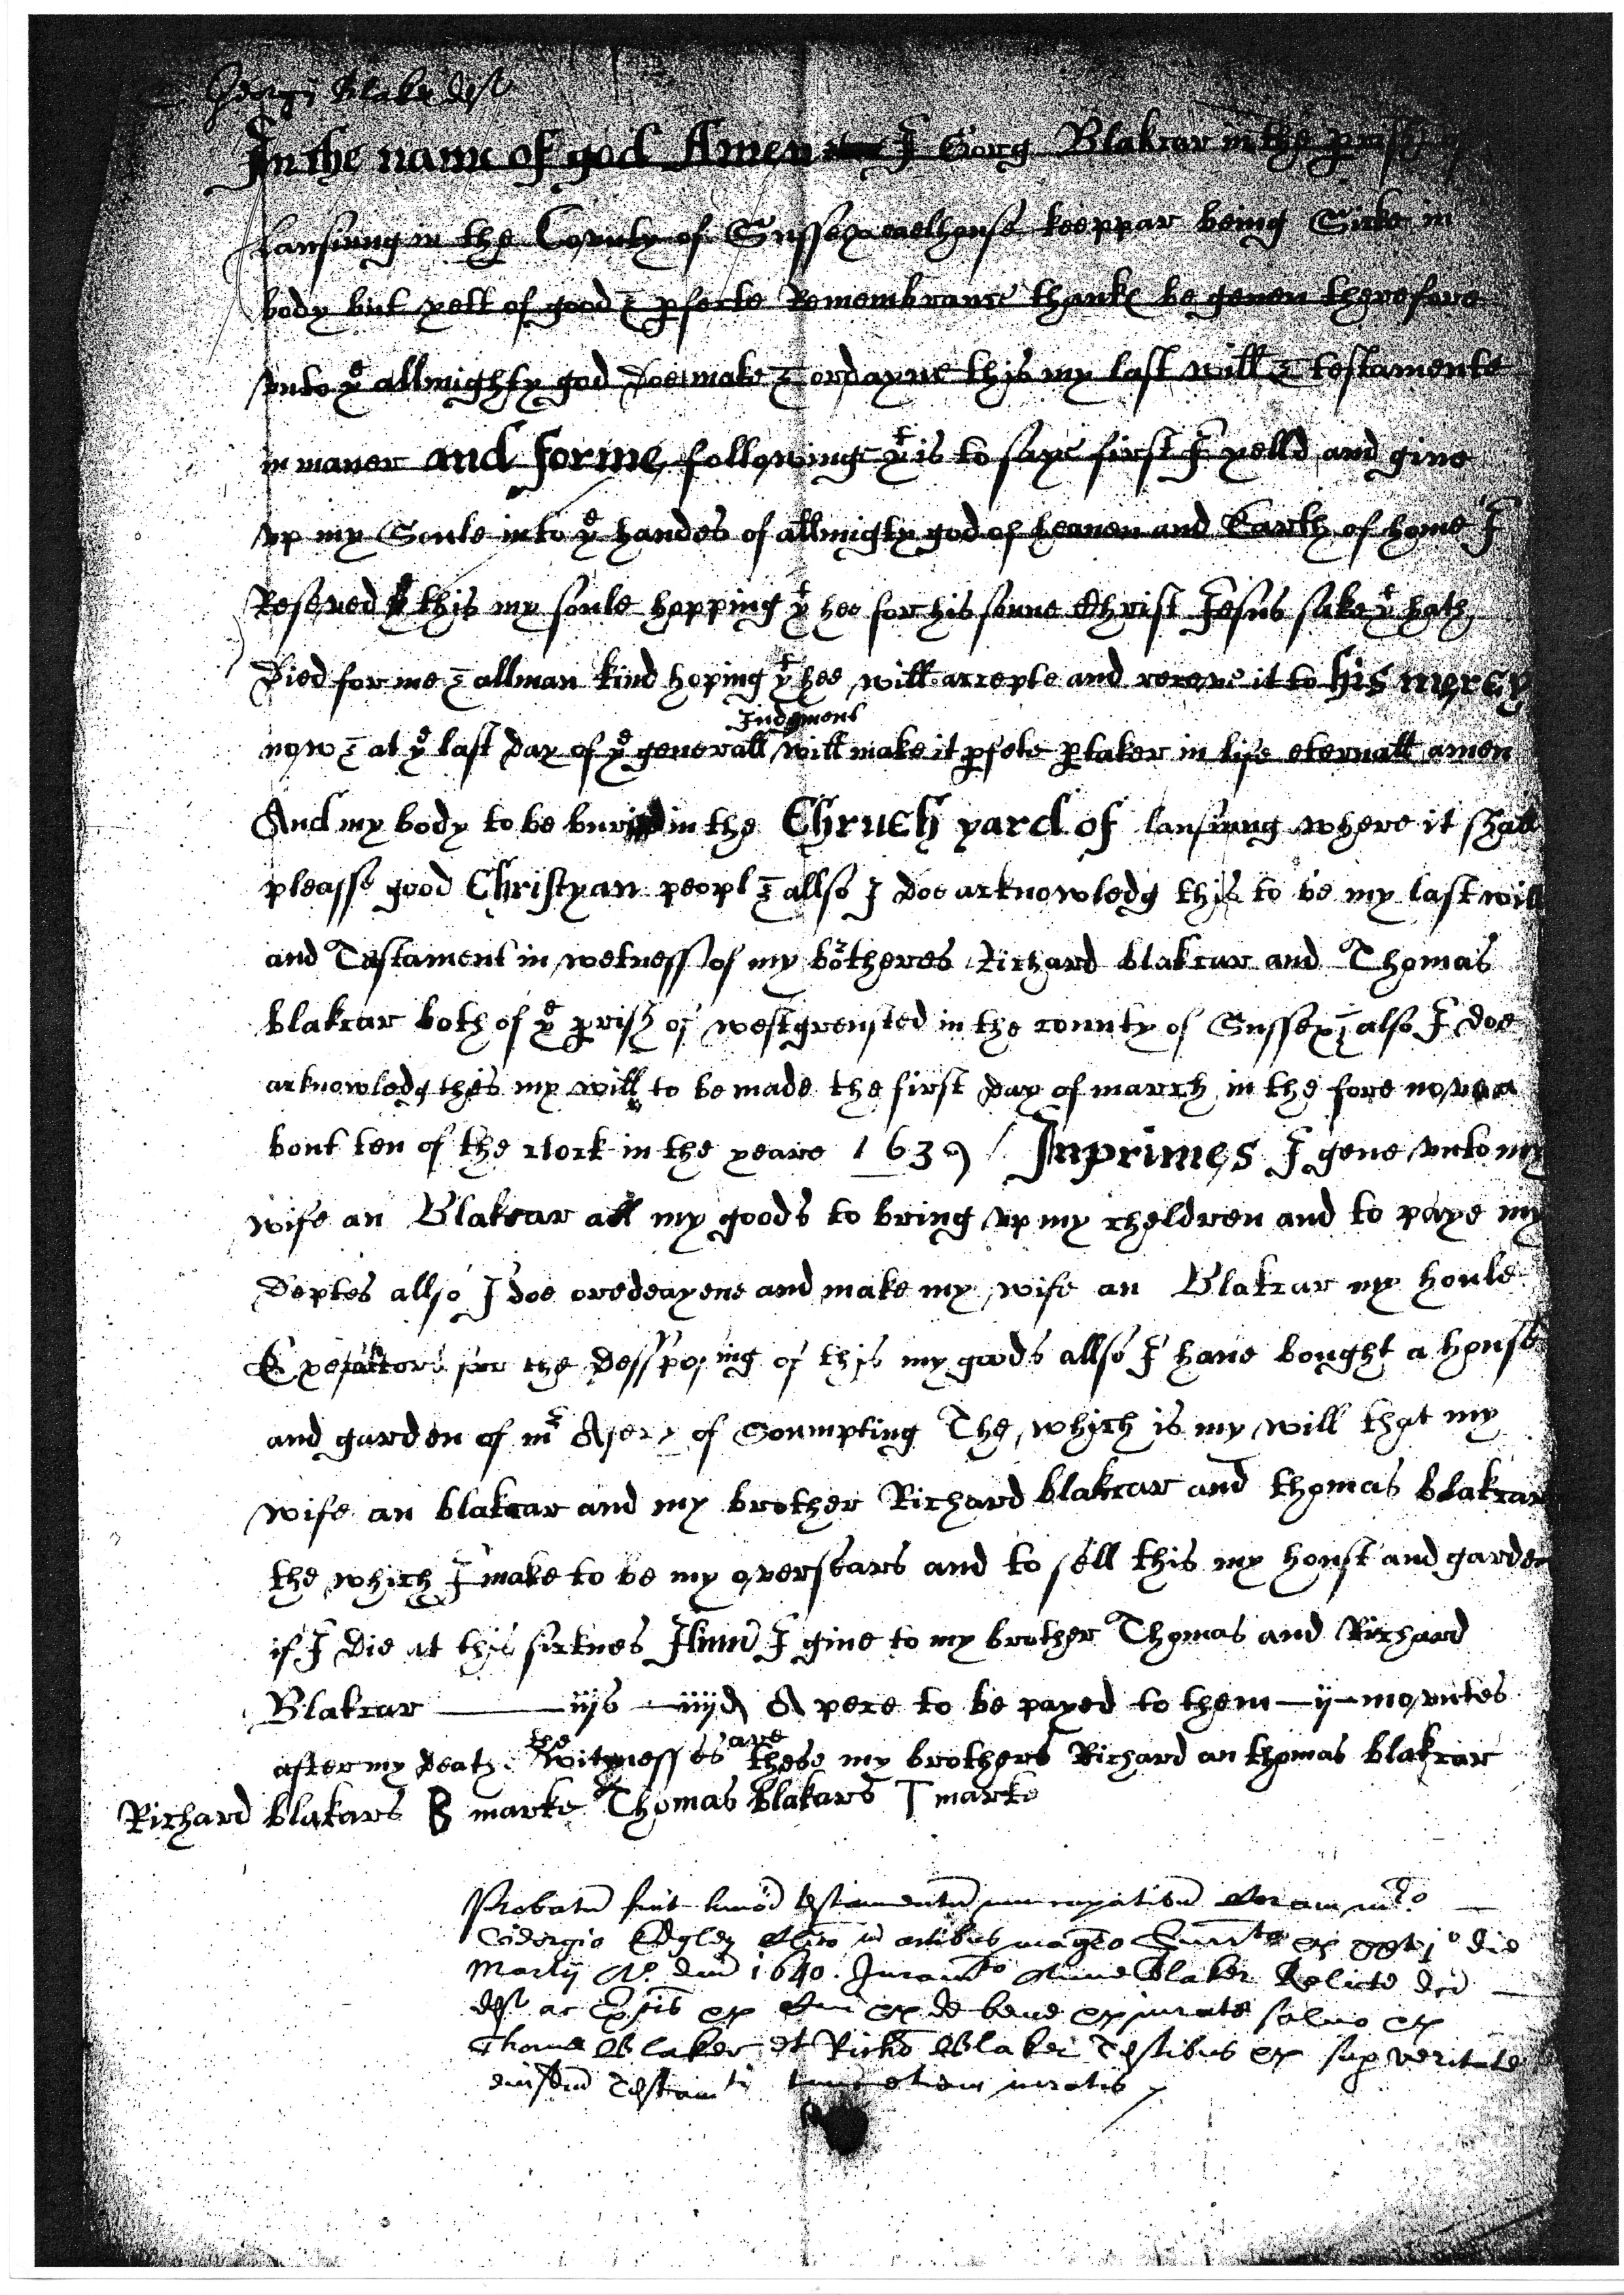 Georgij Blaker defti
In the name of god Amen I Gorg Blakcar in the prish of
lansinng in the County of Sussex aelhouse keeppar being Sicke in
body but yett of good & pfecte Remembrance thanks be geuen therefore
vnto ye allmighty god doe make & ordayne this my last will & testamente
in maner and forme following yt is to saye first I yelld and giue
vp my Soule into ye handes of allmigty god of heauen and Earth of home I
Reseued this my soule hopping yt hee for his sonne Christ Jesus sake yt hath
Died for me & allman kind hoping yt hee will accepte and receue it to his mercy
now & at ye last day of ye generall Judgment will make it pfete ptaker in life eternall amen
And my body to be buried in the Chruch yard of lansinng where it shall
pleasse good Christyan peopl & allso I doe acknowledg this to be my last will
and Testament in wetness of my botheres Richard blakcar and Thomas
blakcar both of ye prish of westgrensted in the county of Sussex & also I doe
acknowledg thes my will to be made the first day of march in the fore noone a
bout ten of the clock in the yeare 1639 Inprimes I geue vnto my
wife an Blakcar all my goods to bring vp my cheldren and to paye my
Deptes allso I doe oredeayene and make my wife an Blakcar my houle
Exesuctor for the dessposing of this my goods allso I haue bought a house
and garden of mr Ayery of Soumpting The which is my will that my
wife an blakcar and my brother Richard blakcar and thomas blakcar
the which I make to be my oversears and to sell this my house and garden
if I die at this sicknes Itim I giue to my brother Thomas and Richard
Blakcar iijs iiijd A pere to be payed to them ij mountes
after my death the witnesses are these my brothers Richard an thomas blakcar
Richard blakars B marke Thomas blakars T marke
Probatu fuit hmod testamentu nuncupativu Coram mro
Georgio Edgley Clico in artibus magro Surrto &c 1o die
Martij Ao dni 1640. Juramto Anne Blaker Relicte dci
defti ac Exris &c cui &c de bene &c jurate salvo &c
Thoma Blaker et Richo Blaker Testibus &c sup veritate
eiusdem Testamti tunc etiam iuratis